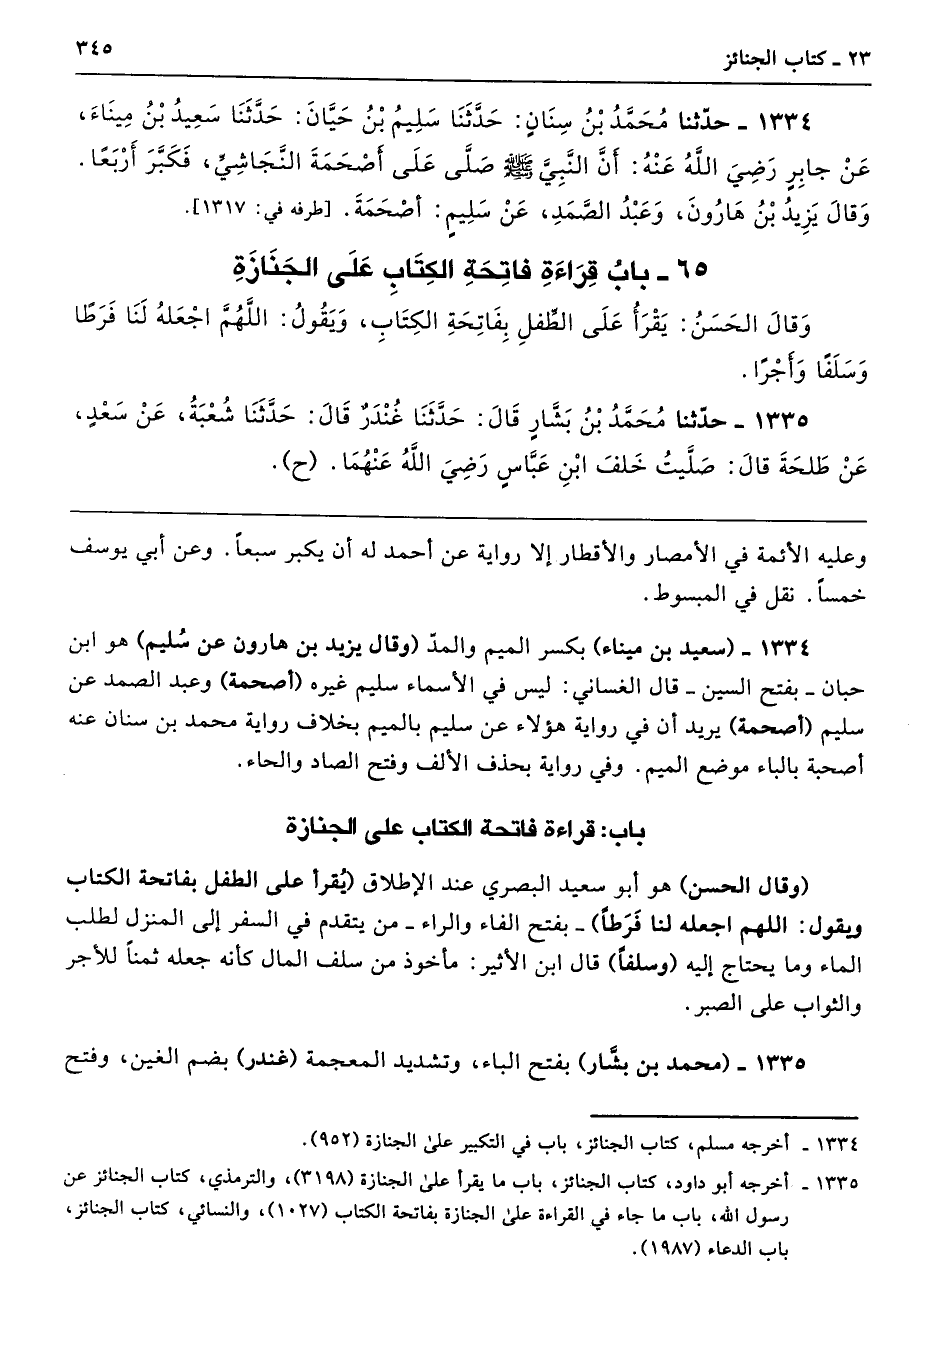 ٢٣ ـ كتاب الجنائز
٣٤٥
١٣٣٤ ـ حدّثنا مُحَمَّدُ بْنُ سِنَانٍ: حَدَّثَنَا سَلِيمُ بْنُ حَيَّانَ: حَدَّثَنَا سَعِيدُ بْنُ مِينَاءَ،
عَنْ جابِرٍ رَضِيَ اللَّهُ عَنْهُ: أَنَّ النَّبِيَّ ﷺ صَلَّى عَلَى أَصْحَمَةَ النَّجَاشِيِّ، فَكَبَّرَ أَرْبَعًا.
وَقالَ يَزِيدُ بْنُ هَارُونَ، وَعَبْدُ الصَّمَدِ، عَنْ سَلِيمٍ: أَصْحَمَةَ. [طرفه في: ١٣١٧].
٦٥ ـ بابُ قِرَاءَةِ فاتِحَةِ الكِتَابِ عَلَى الجَنَازَةِ
وَقالَ الحَسَنُ: يَقْرَأُ عَلَى الطِّفلِ بِفَاتِحَةِ الكِتَابِ، وَيَقُولُ: اللَّهُمَّ اجْعَلهُ لَنَا فَرَطًا
وَسَلَفًا وَأَجْرًا.
١٣٣٥ ـ حدّثنا مُحَمَّدُ بْنُ بَشَّارٍ قَالَ: حَدَّثَنَا غُنْدَرٌ قَالَ: حَدَّثَنَا شُعْبَةُ، عَنْ سَعْدٍ،
عَنْ طَلحَةَ قالَ: صَلَّيتُ خَلفَ ابْنِ عَبَّاسٍ رَضِيَ اللَّهُ عَنْهُمَا. (ح).
وعليه الأئمة في الأمصار والأقطار إلا رواية عن أحمد له أن يكبر سبعاً. وعن أبي يوسف
خمساً. نقل في المبسوط.
١٣٣٤ ـ (سعيد بن ميناء) بكسر الميم والمدّ (وقال يزيد بن هارون عن سُليم) هو ابن
حبان ـ بفتح السين ـ قال الغساني: ليس في الأسماء سليم غيره (أصحمة) وعبد الصمد عن
سليم (أصحمة) يريد أن في رواية هؤلاء عن سليم بالميم بخلاف رواية محمد بن سنان عنه
أصحبة بالباء موضع الميم. وفي رواية بحذف الألف وفتح الصاد والحاء.
باب: قراءة فاتحة الكتاب على الجنازة
(وقال الحسن) هو أبو سعيد البصري عند الإطلاق (يُقرأ على الطفل بفاتحة الكتاب
ويقول: اللهم اجعله لنا فَرَطاً) ـ بفتح الفاء والراء ـ من يتقدم في السفر إلى المنزل لطلب
الماء وما يحتاج إليه (وسلفاً) قال ابن الأثير: مأخوذ من سلف المال كأنه جعله ثمناً للأجر
والثواب على الصبر.
١٣٣٥ ـ (محمد بن بشَّار) بفتح الباء، وتشديد المعجمة (غندر) بضم الغين، وفتح
١٣٣٤ ـ أخرجه مسلم، كتاب الجنائز، باب في التكبير علىٰ الجنازة (٩٥٢).
١٣٣٥ ـ أخرجه أبو داود، كتاب الجنائز، باب ما يقرأ علىٰ الجنازة (٣١٩٨)، والترمذي، كتاب الجنائز عن
رسول الله، باب ما جاء في القراءة علىٰ الجنازة بفاتحة الكتاب (١٠٢٧)، والنسائي، كتاب الجنائز،
باب الدعاء (١٩٨٧).